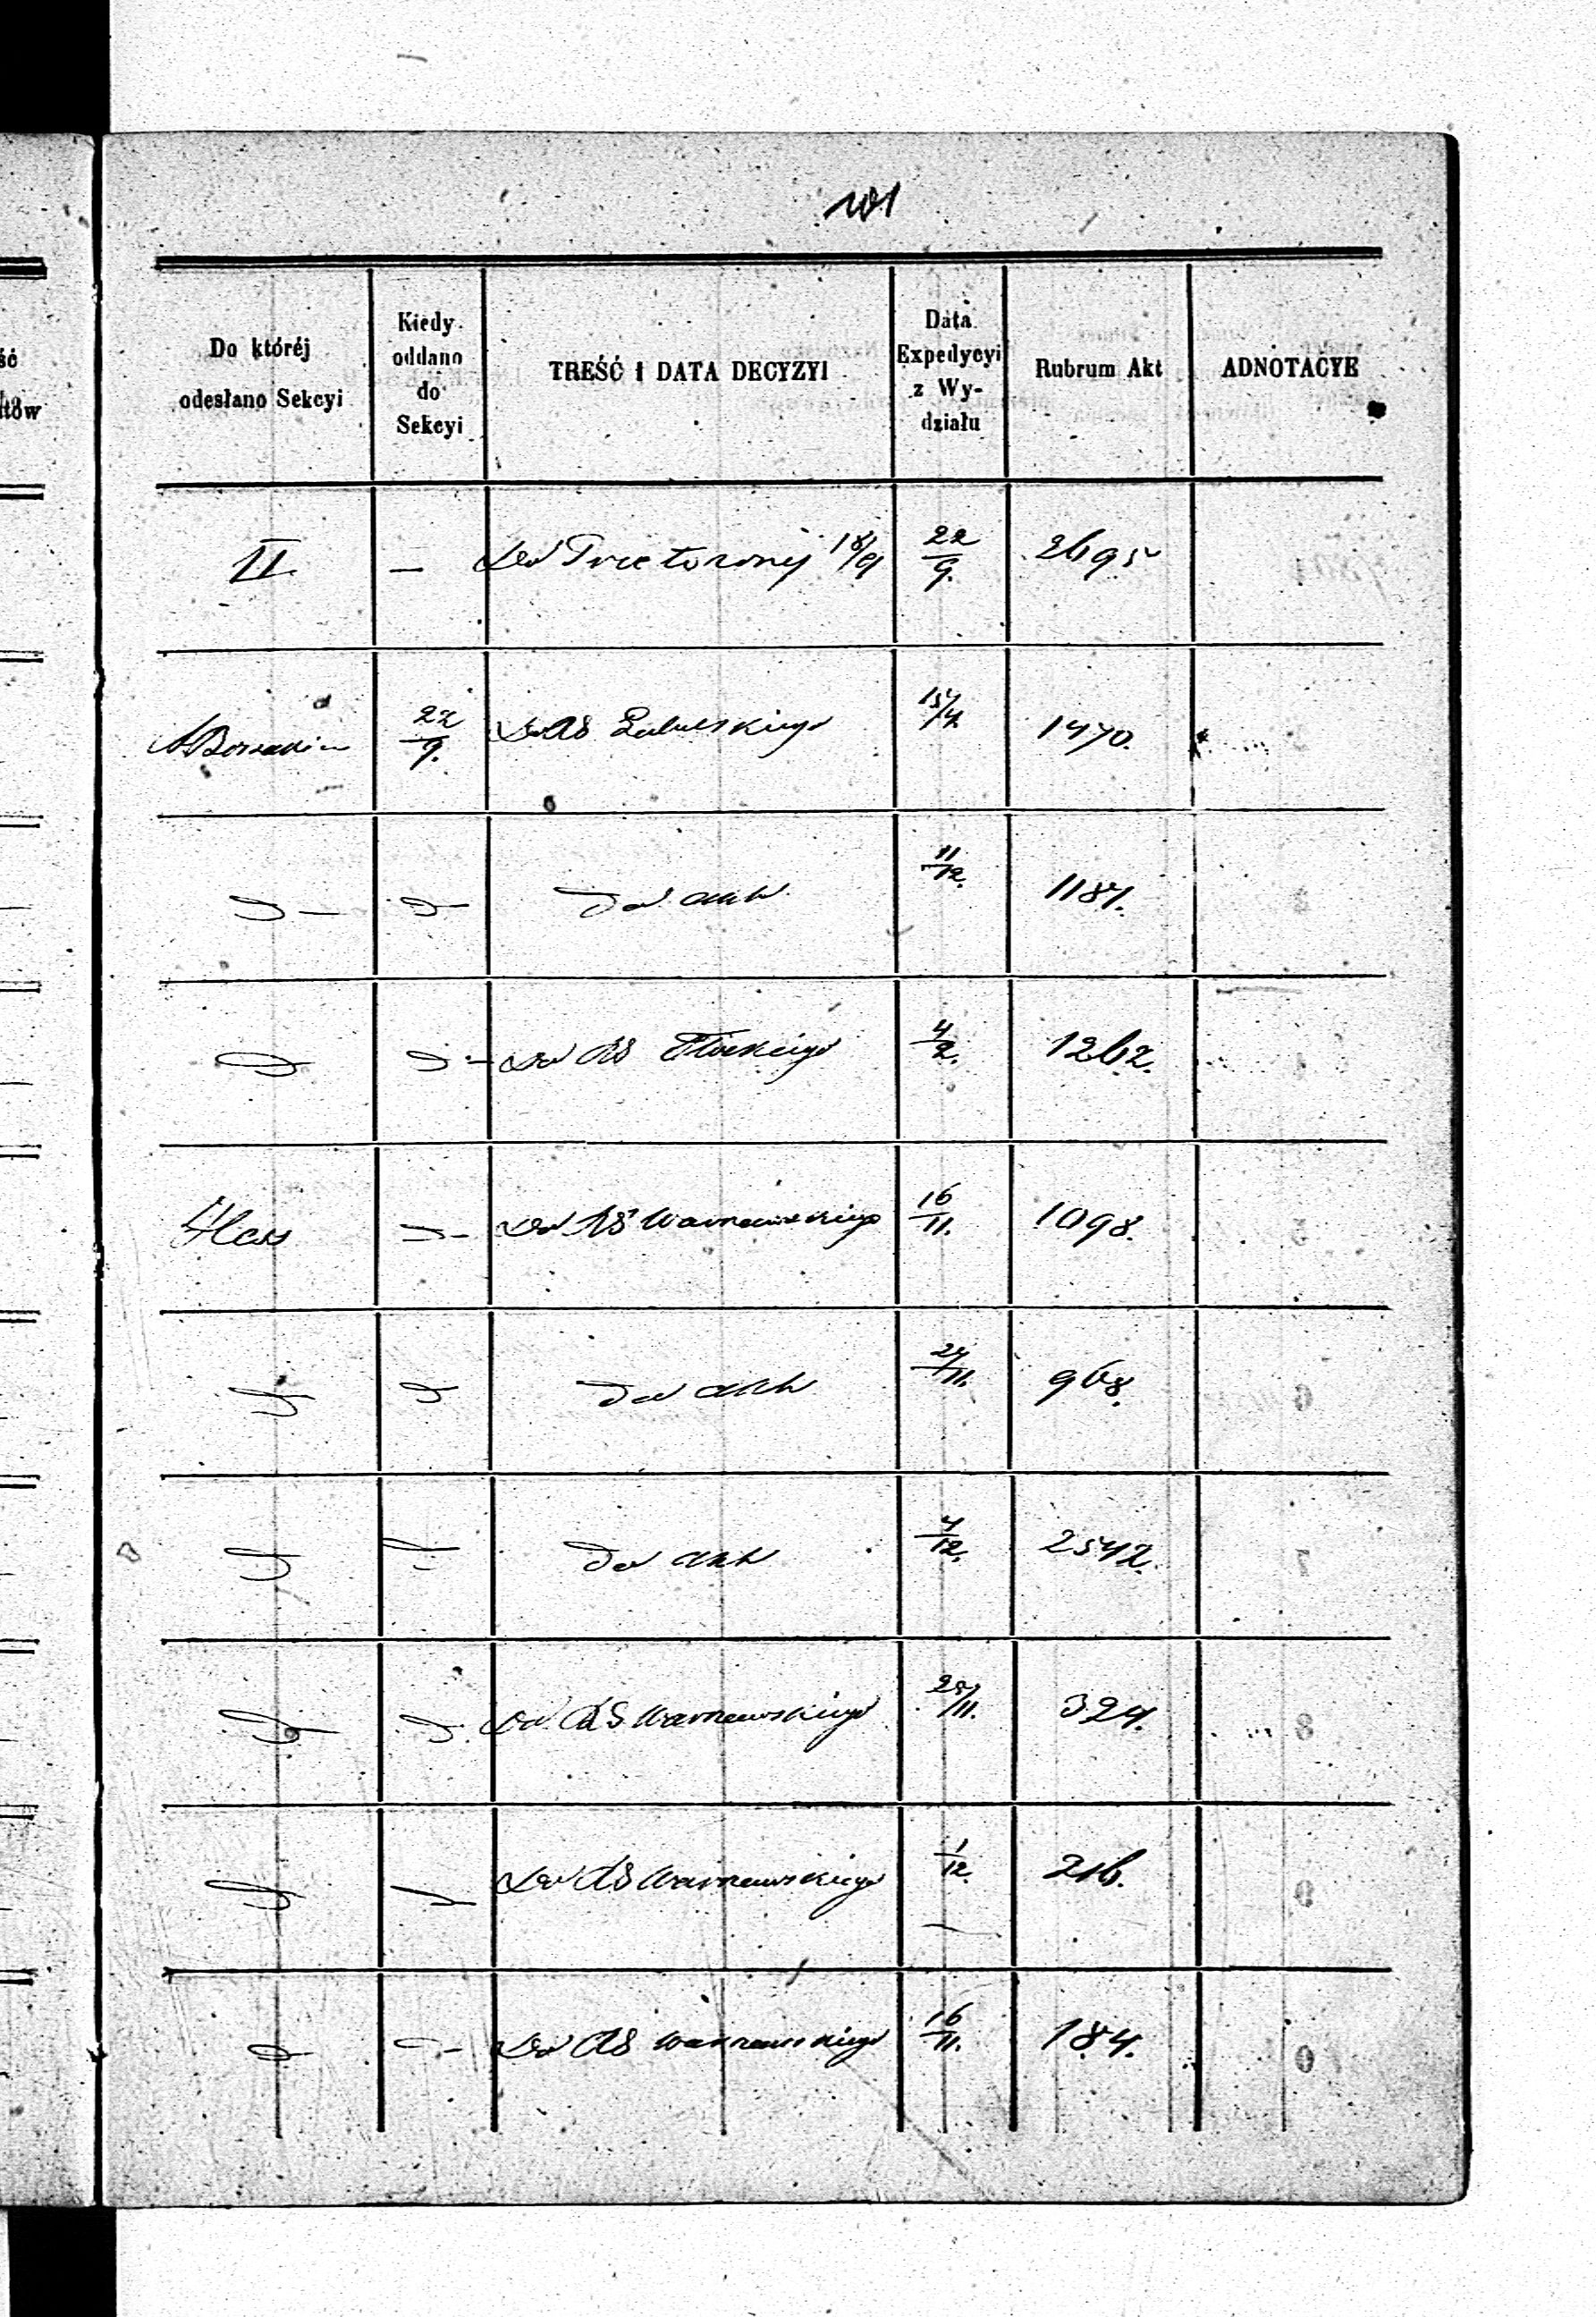 101
Do któréj
odesłano Sekcyi
Kiedy
oddano
do
Sekcyi
TREŚĆ I DATA DECYZYI
Data
Expedycyi
z Wy-
działu
Rubrum Akt
ADNOTACYE
II. — Do 18/9 22/9. 2695
22/9. Do RG Lubelskiego 15/4. 1470.
do akt 11/12. 1187.
Do RG Płockiego 4/2. 1262.
Hass Do RG Warszawskiego 16/11. 1098.
do akt 24/11. 968.
do akt 4/12. 2542.
Do RG Warszawskiego 25/11. 324.
Do RG Warszawskiego 1/12. 216.
Do RG Warszawskiego 16/11. 184.